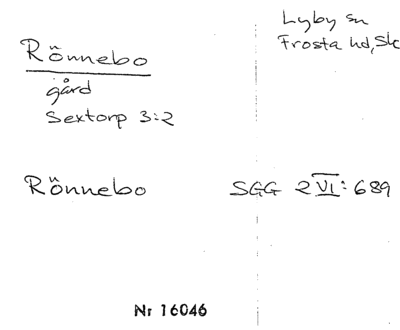 Lyby sn
Frosta hd, Sk
Rönnebo
gård
Sextorp 3:2
Rönnebo SGG 2 VI: 689
Nr 16046